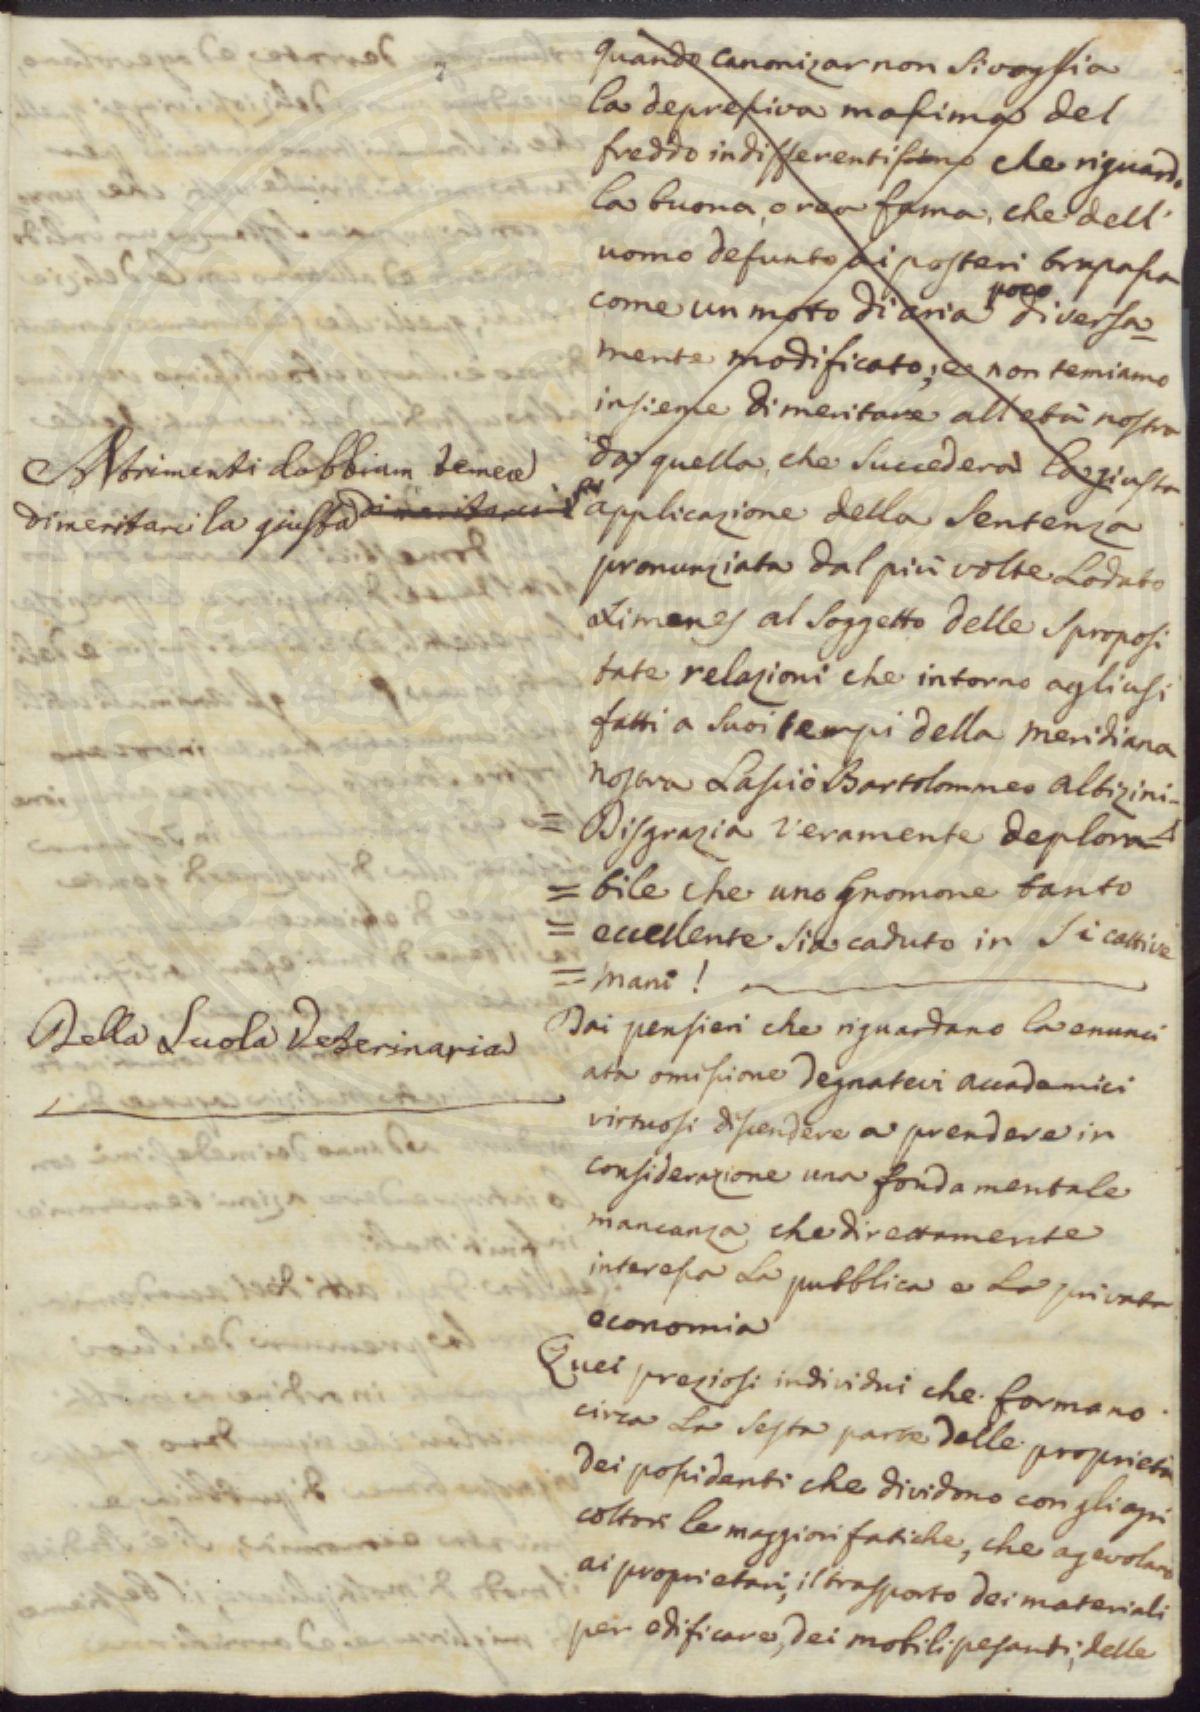 quando canonizar non si voglia
la depressiva massima del
freddo indifferentissimo che riguarda
la buona, o rea fama, che dell'
uomo defunto ai posteri trapassa
come un moto di aria poco diversa=
mente modificato; e non temiamo
insieme di meritare all età nostra
da quella, che succederà la giusta
Altrimenti dobbiam temere
di meritarci la giusta di meritarci la
applicazione della Sentenza
pronunziata dal più volte Lodato
Ximenes al soggetto delle sproposi
tate relazioni che intorno agli usi
fatti a suoi tempi della meridiana
nostra Lasciò Bartolommeo Albizini=
= Disgrazia veramente deplora=
= bile che uno Gnomone tanto
= eccellente sia caduto in sì cattive
= mani!
Della Scuola Veterinaria
Dai pensieri che riguardano la enunci
ata omissione degnatevi accademici
virtuosi discendere a prendere in
considerazione una fondamentale
mancanza che direttamente
interessa La pubblica e La privata
economia
Quei preziosi individui che formano
circa La Sesta parte delle proprietà
dei possidenti che dividono con gli agri
coltori le maggiori fatiche, che agevolano
ai proprietari, il trasporto dei materiali
per edificare, dei mobili pesanti, delle